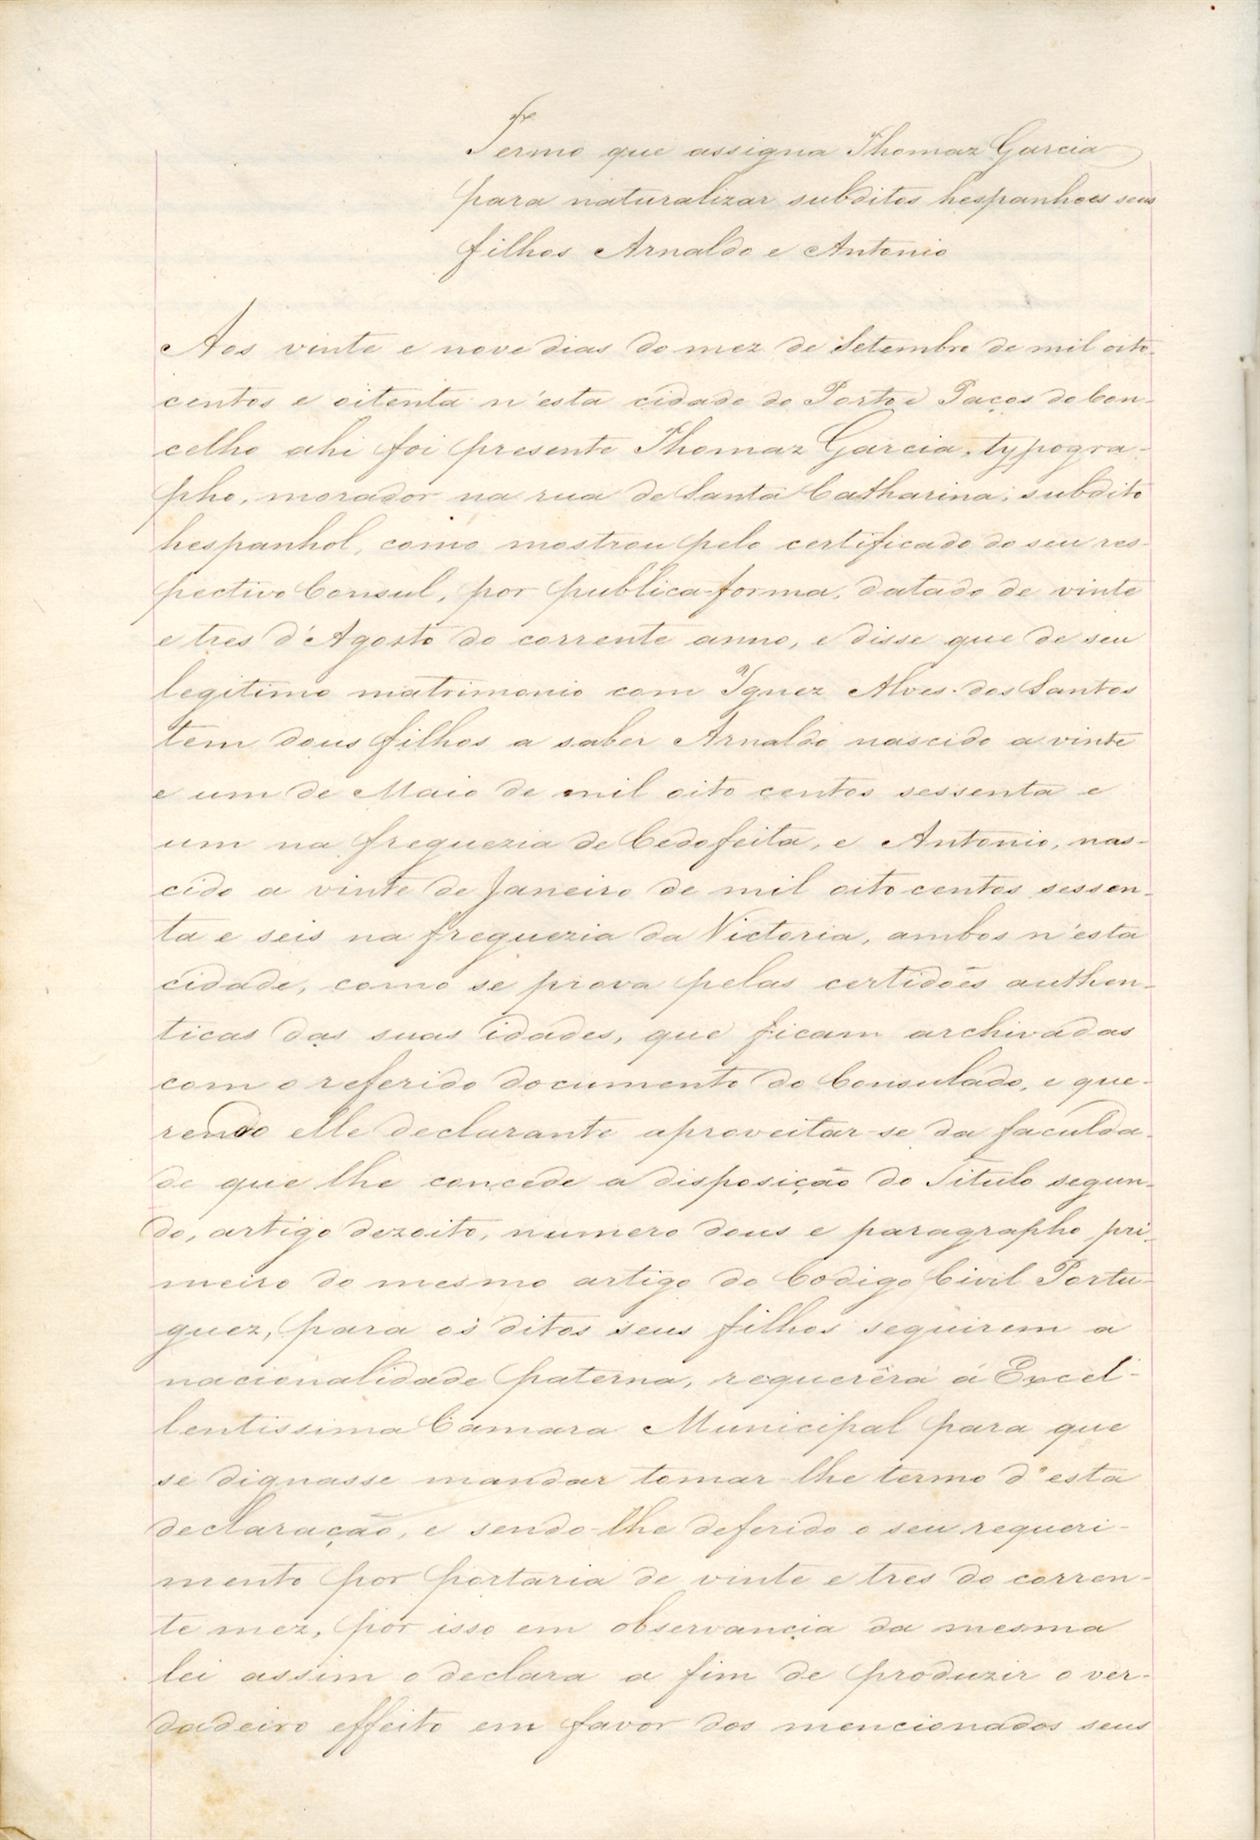 Termo que assigna Thomaz Garcia
para naturalizar subditos hespanhoes seus
filhos Arnaldo e Antonio
Aos vinte e nove dias do mez de Setembro de mil oito-
centos e oitenta n'esta cidade do Porto e Paços do Con-
celho ahi foi presente Thomaz Garcia, typogra-
pho, morador na rua de Santa Catharina, subdito
hespanhol, como mostrou pelo certificado do seu res-
pectivo Consul, por publica-forma, datado de vinte
e tres d'Agosto do corrente anno, e disse que de seu
legitimo matrimonio com Ignez Alves dos Santos
tem dous filhos a saber Arnaldo nascido a vinte
e um de Maio de mil oito centos sessenta e
um na freguezia de Cedofeita, e Antonio, nas-
cido a vinte de Janeiro de mil oito centos sessen-
ta e seis na freguezia da Victoria, ambos n'esta
cidade, como se prova pelas certidões authen-
ticas das suas idades, que ficam archivadas
com o referido documento do Consulado, e que-
rendo elle declarante aproveitar-se da faculda-
de que lhe concede a disposição do Titulo segun-
do, artigo dezoito, numero dous e paragrapho pri-
meiro do mesmo artigo do Codigo Civil Portu-
guez, para os ditos seus filhos seguirem a
nacionalidade paterna, requerêra á Excel-
lentissima Camara Municipal para que
se dignasse mandar tomar-lhe termo d'esta
declaração, e sendo-lhe deferido o seu requeri-
mento por portaria de vinte e tres do corren-
te mez, por isso em observancia da mesma
lei assim o declara a fim de produzir o ver-
dadeiro effeito em favor dos mencionados seus